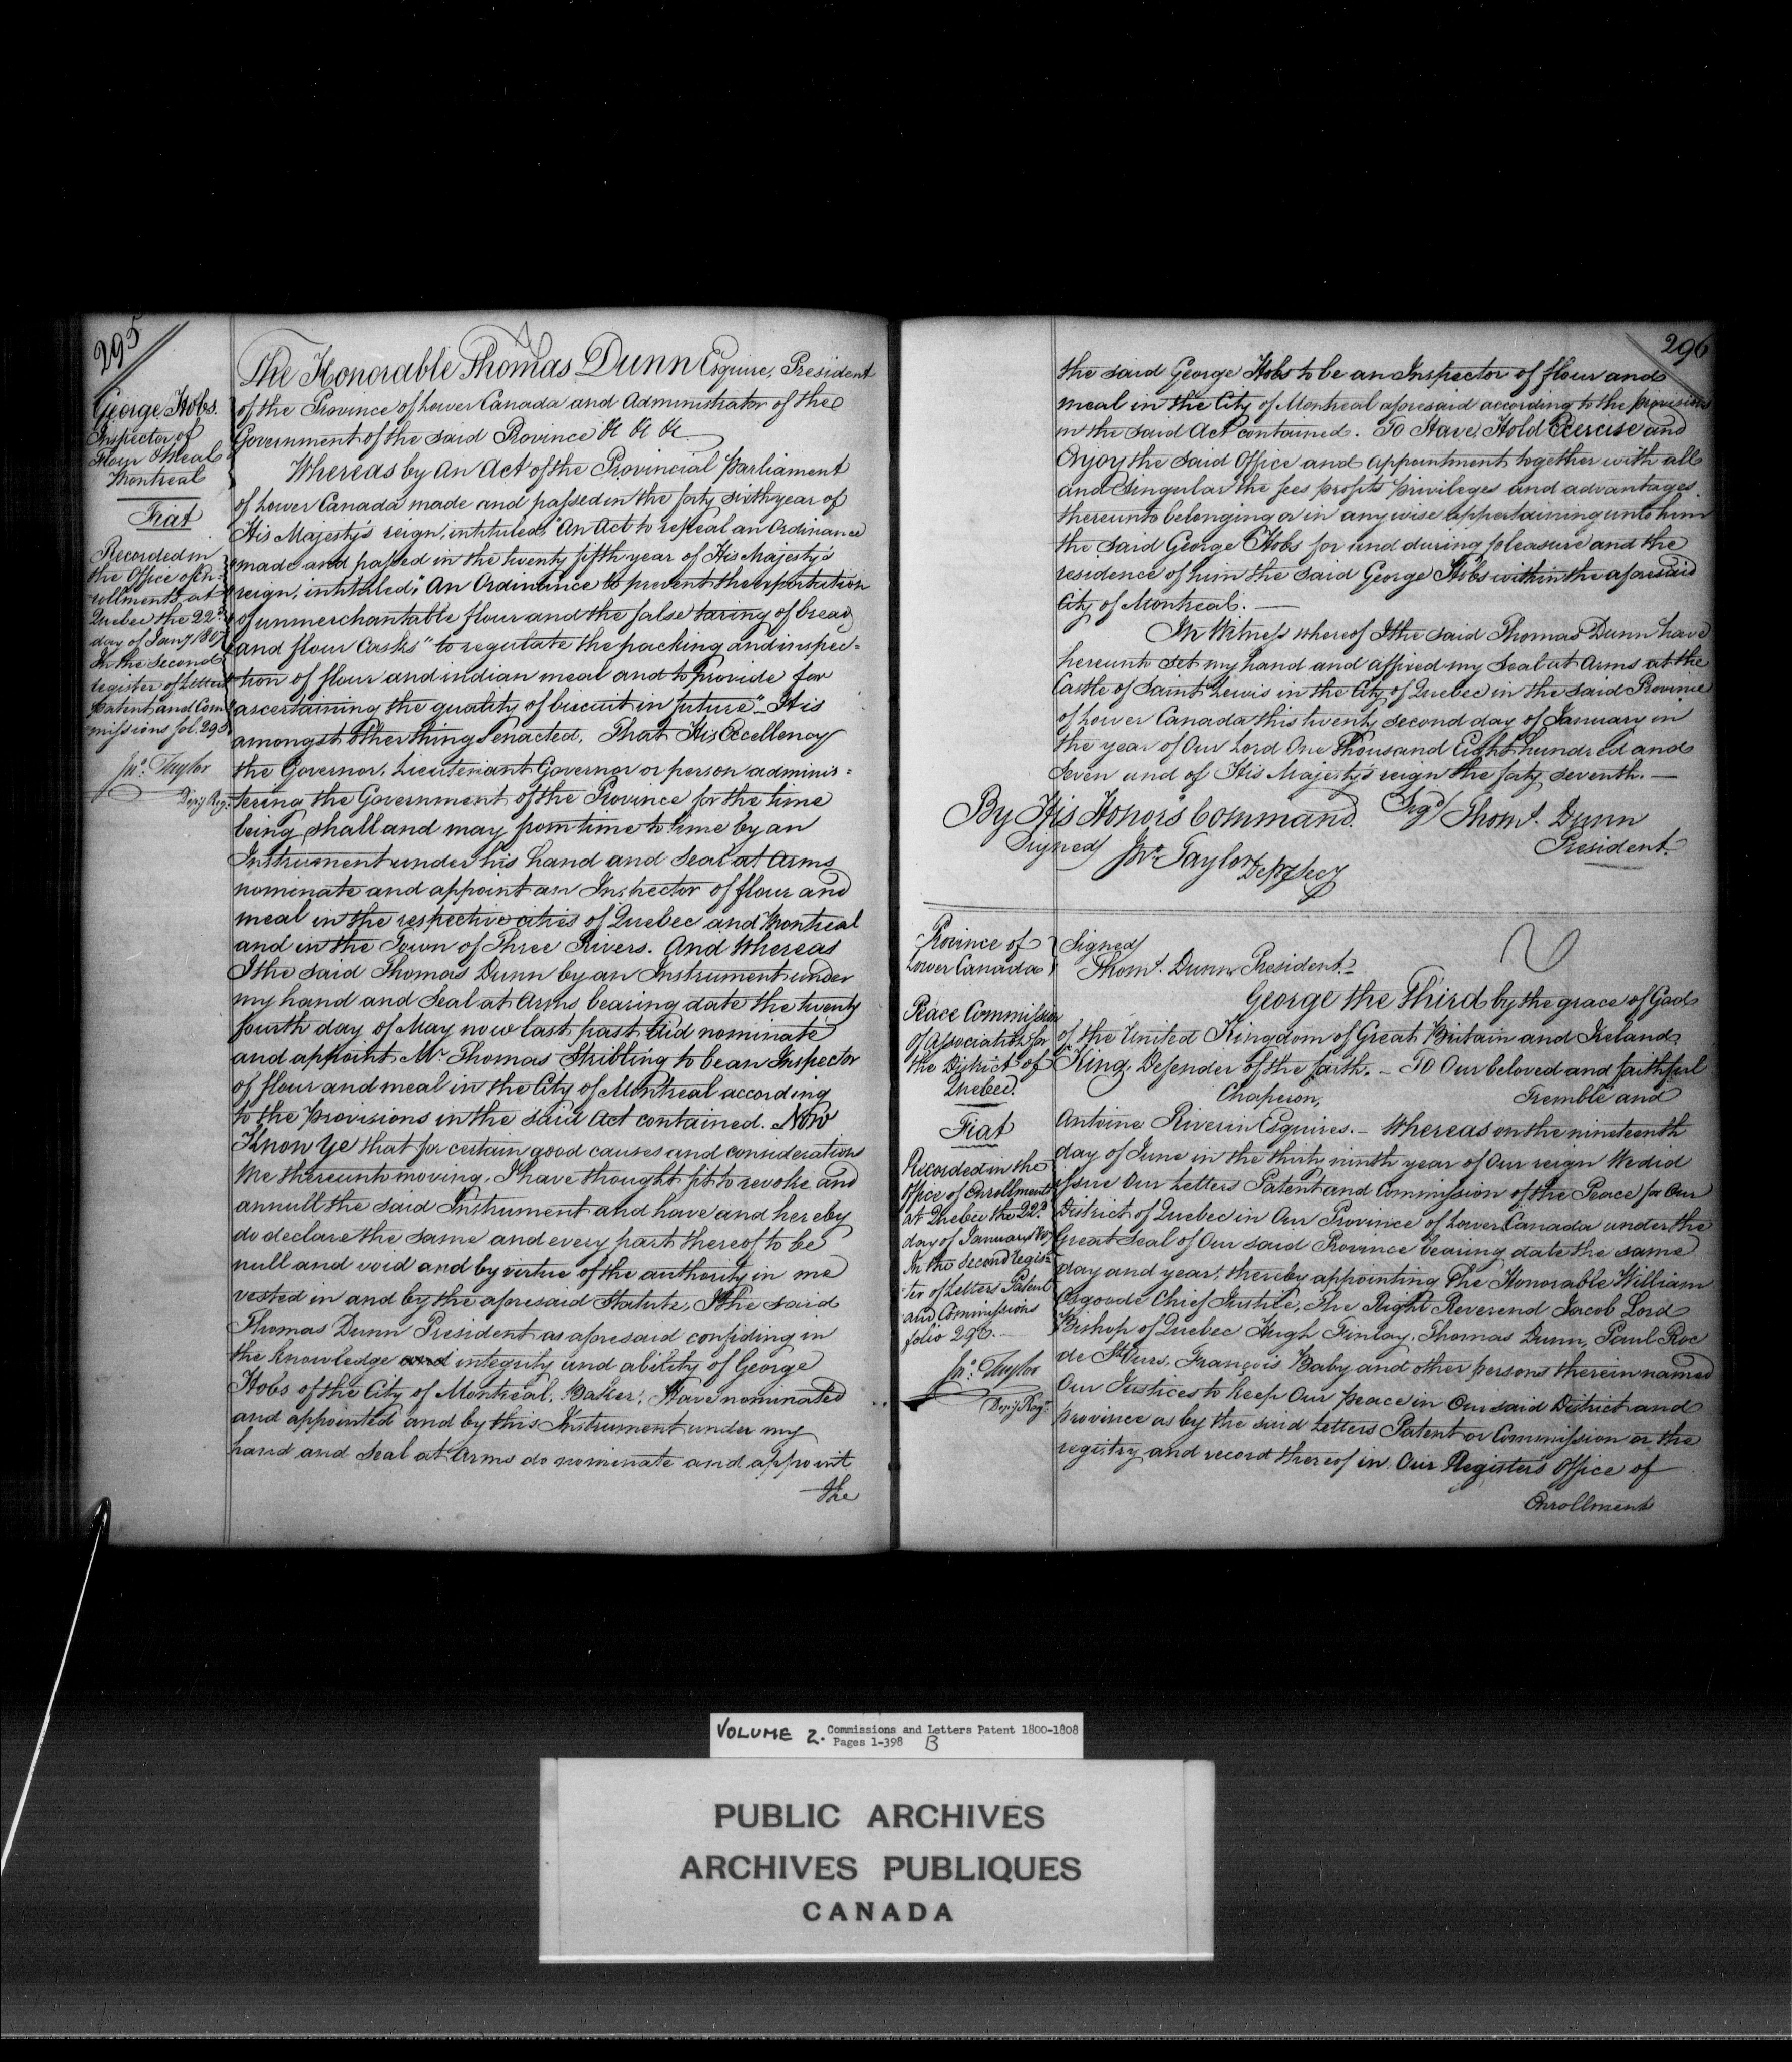 295
George Hobs.
Inspector of
Flour & Meal
Montreal
Fiat
Recorded in
the Office of En-
rollments at
Quebec the 22d
day of Jany 1807
In the Second
register of Letters
Patent and Com
missions fol. 295
Jno. Taylor
Depy Regr.
The Honorable Thomas Dunn Esquire, President
of the Province of Lower Canada and Administrator of the
Government of the said Province &c &c &c
Whereas by An Act of the Provincial Parliament
of Lower Canada made and passed in the forty sixth year of
His Majesty's reign, intituled, "An Act to repeal an Ordinance
made and passed in the twenty fifth year of His Majesty's
reign, intituled, "An Ordinance to prevent the exportation
of unmerchantable flour and the false taring of bread
and flour Casks" to regulate the packing and inspec=
tion of flour and indian meal and to Provide for
ascertaining the quality of biscuit in future"_ It is
amongst Other things enacted, That His Excellency
the Governor, Lieutenant Governor or person adminis=
tering the Government of the Province for the time
being shall and may from time to time by an
Instrument under his hand and Seal at Arms
nominate and appoint an Inspector of flour and
meal in the respective cities of Quebec and Montreal
and in the Town of Three Rivers. And Whereas
I the said Thomas Dunn by an Instrument under
my hand and Seal at Arms bearing date the twenty
fourth day of May now last past did nominate
and appoint Mr. Thomas Stribling to be an Inspector
of flour and meal in the City of Montreal according
to the provisions in the said Act contained. Now
Know Ye that for certain good causes and considerations
Me thereunto moving, I have thought fit to revoke and
annull the said Instrument and have and hereby
do declare the same and every part thereof to be
null and void and by vertue of the authority in me
vested in and by the aforesaid Statute, I the said
Thomas Dunn President as aforesaid confiding in
the knowledge and integrity and ability of George
Hobs of the City of Montreal, Baker, Have nominated
and appointed and by this Instrument under my
hand and Seal at Arms do nominate and appoint
the
296
the said George Hobs to be an Inspector of flour and
meal in the City of Montreal aforesaid according to the provisions
in the said Act contained. To Have, Hold Exercise and
Enjoy the said Office and appointment together with all
and Singular the fees profits privileges and advantages
thereunto belonging or in any wise appertaining unto him
the said George Hobs for and during pleasure and the
residence of him the said George Hobs within the aforesaid
City of Montreal. —
In Witness whereof I the said Thomas Dunn have
hereunto set my hand and affixed my Seal at Arms at the
Castle of Saint Lewis in the City of Quebec in the said Province
of Lower Canada this twenty second day of January in
the year of Our Lord One Thousand Eight hundred and
Seven and of His Majesty's reign the forty seventh. —
By His Honors Command. Sigd/ Thoms. Dunn
Signed/ Jno. Taylor Depy Secy President.
Province of
Lower Canada
Signed/
Thoms. Dunn President.
Peace Commission
of Association for
the District of
Quebec.
Fiat
Recorded in the
Office of Enrollments
at Quebec the 22d.
day of January 1807
In the Second Regis-
ter of Letters Patent
and Commissions
folio 296. —
Jno. Taylor
Depy Regr.
George the Third by the grace of God
of the United Kingdom of Great Britain and Ireland
King, Defender of the faith. _ To Our beloved and faithful
Chaperon, Tremble and
Antoine Riverin Esquires. _ Whereas on the nineteenth
day of June in the thirty ninth year of Our reign We did
issue Our Letters Patent and Commission of the Peace for Our
District of Quebec in Our Province of Lower Canada under the
Great Seal of Our said Province bearing date the same
day and year, thereby appointing The Honorable William
Osgoode Chief Justice, The Right Reverend Jacob Lord
Bishop of Quebec Hugh Finlay, Thomas Dunn, Paul Roc
de St. Ours, François Baby and other persons therein named
Our Justices to keep Our Peace in Our said District and
Province as by the said Letters Patent or Commission or the
registry and record thereof in Our Registers Office of
Enrollments
VOLUME 2. Commissions and Letters Patent 1800-1808
Pages 1-398 B
PUBLIC ARCHIVES
ARCHIVES PUBLIQUES
CANADA